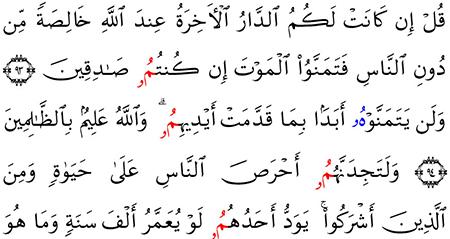 قُلْ إِن كَانَتْ لَكُمُ الدَّارُ الْأَخِرَةُ عِندَ اللَّهِ خَالِصَةً مِّن
دُونِ النَّاسِ فَتَمَنَّوُاْ الْمَوْتَ إِن كُنتُمُۥ صَـٰدِقِينَ ﴿٩٣﴾
وَلَن يَتَمَنَّوْهُۥ أَبَدَۢا بِمَا قَدَّمَتْ أَيْدِيهِمُۥ ۗ وَاللَّهُ عَلِيمُۢ بِالظَّـٰلِمِينَ
﴿٩٤﴾ وَلَتَجِدَنَّهُمُۥ أَحْرَصَ النَّاسِ عَلَىٰ حَيَوٰةٍ وَمِنَ
الَّذِينَ أَشْرَكُواْ ۚ يَوَدُّ أَحَدُهُمُۥ لَوْ يُعَمَّرُ أَلْفَ سَنَةٍ وَمَا هُوَ